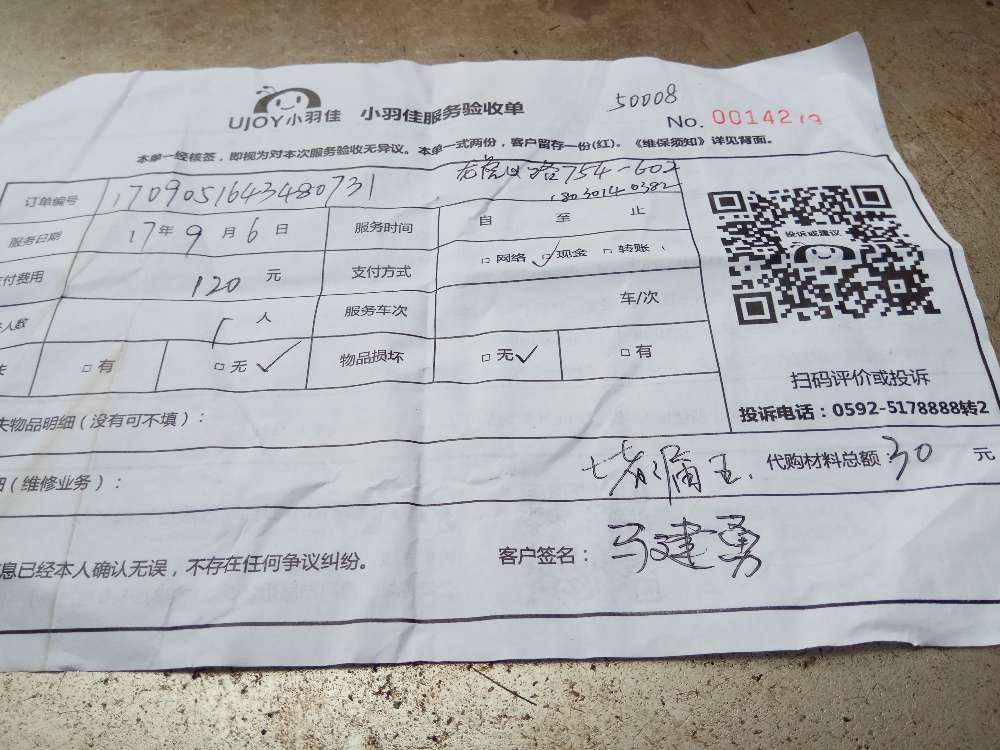 50008
UJOY小羽佳 小羽佳服务验收单 No. 00142
本单一经核签，即视为对本次服务验收无异议。本单一式两份，客户留存一份(红)。《维保须知》详见背面。
订单编号 1709051643480731 754-602
18030140382
服务日期 17年9月6日 服务时间 自 至 止
投诉或建议
支付费用 120 元 支付方式 □网络 ☑现金 □转账
人数 1 人 服务车次 车/次
□有 □无✓ 物品损坏 □无✓ □有
扫码评价或投诉
失物品明细（没有可不填）：
投诉电话：0592-5178888转2
（维修业务）： 堵漏王. 代购材料总额 30 元
息已经本人确认无误，不存在任何争议纠纷。 客户签名： 马建勇